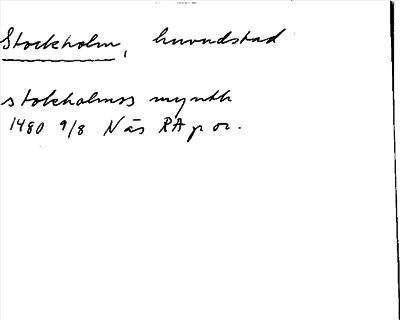 Stockholm, huvudstad
stokholmss mynth
1480 9/8 Näs RAp or.